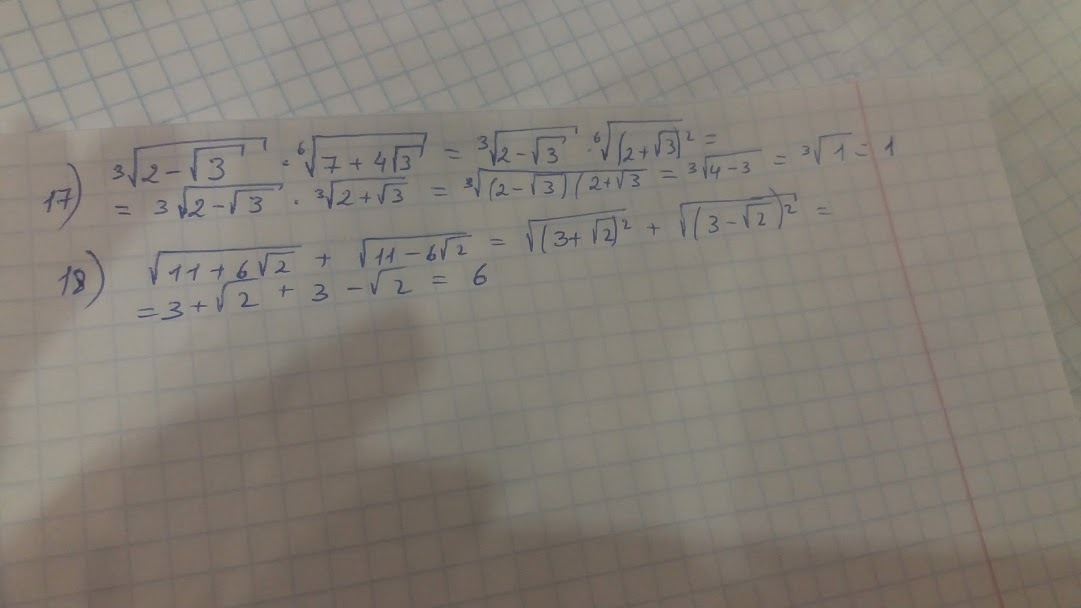 17) ∛(2-√3) · ⁶√(7+4√3) = ∛(2-√3) · ⁶√((2+√3)²) =
= ∛(2-√3) · ∛(2+√3) = ∛((2-√3)(2+√3) = ∛(4-3) = ∛1 = 1
18) √(11+6√2) + √(11-6√2) = √((3+√2)²) + √((3-√2)²) =
= 3+√2 + 3-√2 = 6